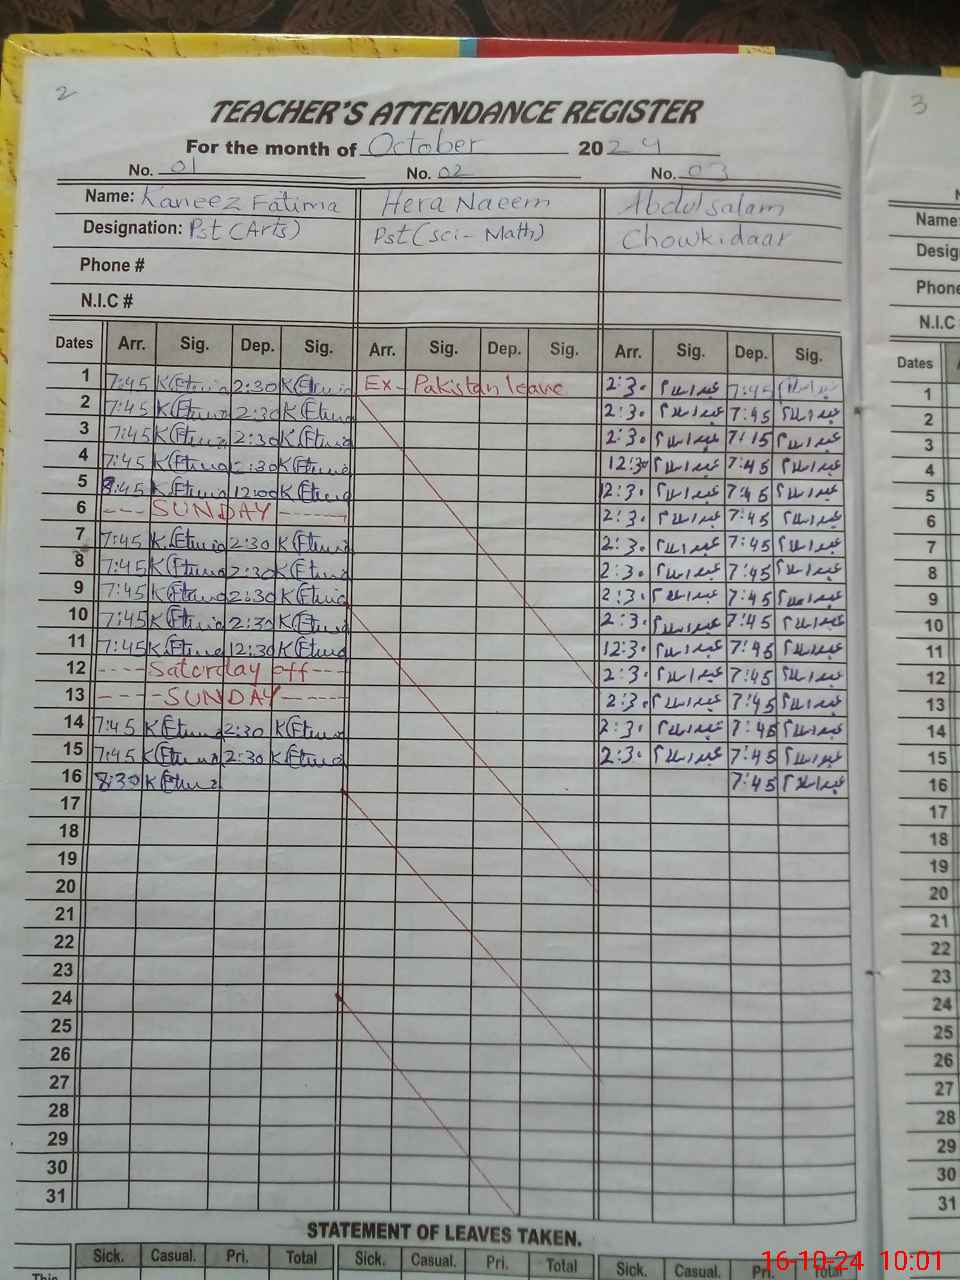 2
3
TEACHER'S ATTENDANCE REGISTER
For the month of October 2024
No. 01 No. 02 No. 03
Name: Kaneez Fatima Hera Naeem Abdulsalam
Designation: Pst (Arts) Pst (Sci-Math) Chowkidaar
Phone #
N.I.C #
Dates Arr. Sig. Dep. Sig. Arr. Sig. Dep. Sig. Arr. Sig. Dep. Sig.
1 7:45 2:30 Ex-Pakistan leave 2:30 عبدالسلام 7:45 عبدالسلام
2 7:45 2:30 2:30 عبدالسلام 7:45 عبدالسلام
3 7:45 2:30 2:30 عبدالسلام 7:15 عبدالسلام
4 7:45 :30 12:30 عبدالسلام 7:45 عبدالسلام
5 :45 12:00 12:30 عبدالسلام 7:45 عبدالسلام
6 --- SUNDAY ------ 2:30 عبدالسلام 7:45 عبدالسلام
7 7:45 2:30 2:30 عبدالسلام 7:45 عبدالسلام
8 7:45 2:30 2:30 عبدالسلام 7:45 عبدالسلام
9 7:45 2:30 2:30 عبدالسلام 7:45 عبدالسلام
10 7:45 2:30 2:30 عبدالسلام 7:45 عبدالسلام
11 7:45 12:30 12:30 عبدالسلام 7:45 عبدالسلام
12 ---- Saterday off --- 2:30 عبدالسلام 7:45 عبدالسلام
13 ---- SUNDAY ----- 2:30 عبدالسلام 7:45 عبدالسلام
14 7:45 2:30 2:30 عبدالسلام 7:45 عبدالسلام
15 7:45 2:30 2:30 عبدالسلام 7:45 عبدالسلام
16 8:30 7:45 عبدالسلام
17
18
19
20
21
22
23
24
25
26
27
28
29
30
31
STATEMENT OF LEAVES TAKEN.
Sick. Casual. Pri. Total Sick. Casual. Pri. Total Sick. Casual. Pri. Total
This
Name:
Desig
Phone
N.I.C
Dates
1
2
3
4
5
6
7
8
9
10
11
12
13
14
15
16
17
18
19
20
21
22
23
24
25
26
27
28
29
30
31
16-10-24 10:01